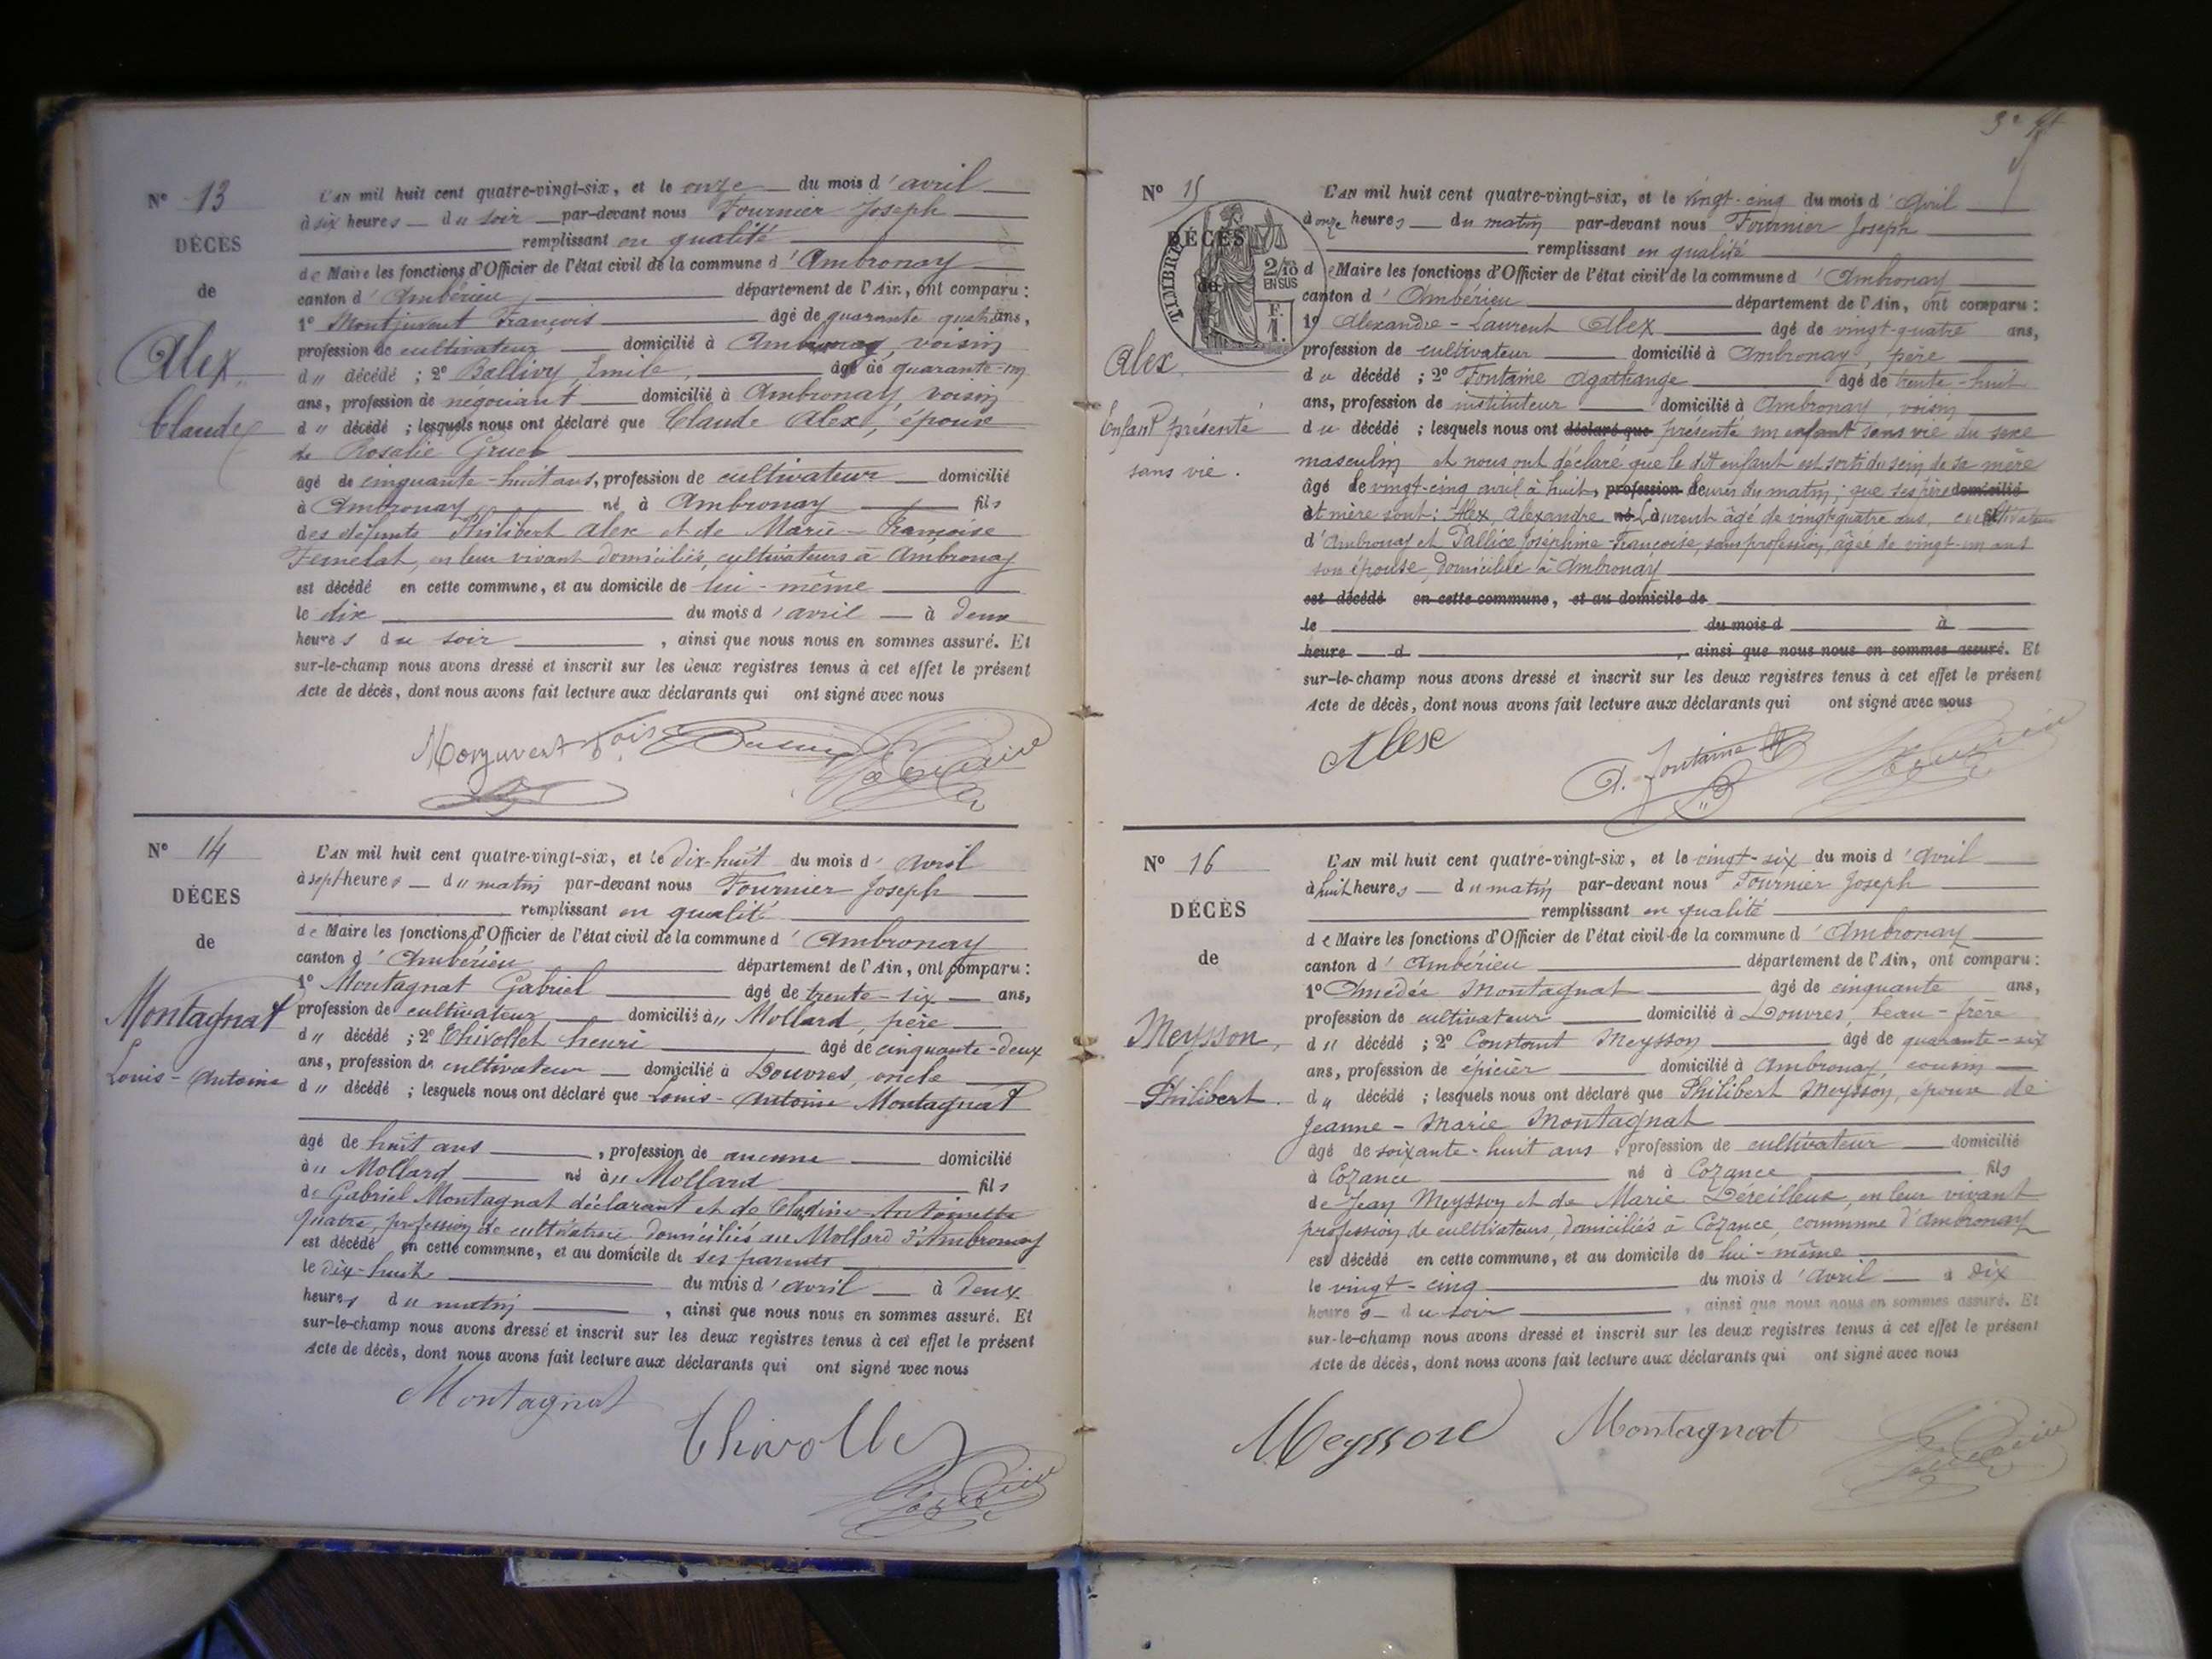 N° 13
DÉCÈS
de
Alex
Claude
L'AN mil huit cent quatre-vingt-six, et le onze du mois d'avril
à six heures du soir par-devant nous Fournier Joseph
remplissant en qualité
de Maire les fonctions d'Officier de l'état civil de la commune d'Ambronay
canton d'Ambérieu département de l'Ain, ont comparu :
1° Montjuvent François âgé de quarante-quatre ans,
profession de cultivateur domicilié à Ambronay, voisin
du décédé ; 2° Ballivy Emile, âgé de quarante-un
ans, profession de négociant domicilié à Ambronay, voisin
du décédé ; lesquels nous ont déclaré que Claude Alex, époux
de Rosalie
âgé de cinquante-huit ans, profession de cultivateur domicilié
à Ambronay né à Ambronay fils
des défunts Philibert Alex et de Marie-Françoise
en leur vivant domiciliés, cultivateurs à Ambronay
est décédé en cette commune, et au domicile de lui-même
le dix du mois d'avril à deux
heures du soir, ainsi que nous nous en sommes assuré. Et
sur-le-champ nous avons dressé et inscrit sur les deux registres tenus à cet effet le présent
Acte de décès, dont nous avons fait lecture aux déclarants qui ont signé avec nous
N° 14
DÉCES
de
Montagnat
Louis-Antoine
L'AN mil huit cent quatre-vingt-six, et le dix-huit du mois d'avril
à sept heures du matin par-devant nous Fournier Joseph
remplissant en qualité
de Maire les fonctions d'Officier de l'état civil de la commune d'Ambronay
canton d'Ambérieu département de l'Ain, ont comparu :
1° Montagnat Gabriel âgé de trente-six ans,
profession de cultivateur domicilié au Mollard, père
du décédé ; 2° Thivollet henri âgé de cinquante-deux
ans, profession de cultivateur domicilié à Douvres, oncle
du décédé ; lesquels nous ont déclaré que Louis-Antoine Montagnat
âgé de huit ans, profession de aucune domicilié
au Mollard né au Mollard fils
de Gabriel Montagnat déclarant et de Claudine-Antoinette
quatre, profession de cultivatrice, domiciliés au Mollard d'Ambronay
est décédé en cette commune, et au domicile de ses parents
le dix-huit du mois d'avril à deux
heures du matin, ainsi que nous nous en sommes assuré. Et
sur-le-champ nous avons dressé et inscrit sur les deux registres tenus à cet effet le présent
Acte de décès, dont nous avons fait lecture aux déclarants qui ont signé avec nous
Montagnat
Thivollet
N° 15
DÉCÈS
de
TIMBRE
2/10
EN SUS
F.
1.
Alex
Enfant présenté
sans vie.
L'AN mil huit cent quatre-vingt-six, et le vingt-cinq du mois d'avril
à onze heures du matin par-devant nous Fournier Joseph
remplissant en qualité
de Maire les fonctions d'Officier de l'état civil de la commune d'Ambronay
canton d'Ambérieu département de l'Ain, ont comparu :
1° Alexandre-Laurent Alex âgé de vingt-quatre ans,
profession de cultivateur domicilié à Ambronay, père
du décédé ; 2° Fontaine Agathange âgé de trente-huit
ans, profession de instituteur domicilié à Ambronay, voisin
du décédé ; lesquels nous ont déclaré que présenté un enfant sans vie du sexe
masculin et nous ont déclaré que le dit enfant est sorti du sein de sa mère
âgé de vingt-cinq avril à huit profession heures du matin; que ses père domicilié
et mère sont : Alex, Alexandre né Laurent âgé de vingt-quatre ans, cultivateur
d'Ambronay et Pallice Joséphine-Françoise, sans profession, âgée de vingt-un ans
son épouse, domiciliée à Ambronay
est décédé en cette commune, et au domicile de
le du mois d à
heure d, ainsi que nous nous en sommes assuré. Et
sur-le-champ nous avons dressé et inscrit sur les deux registres tenus à cet effet le présent
Acte de décès, dont nous avons fait lecture aux déclarants qui ont signé avec nous
Alex
A. Fontaine
N° 16
DÉCÈS
de
Meysson,
Philibert.
L'AN mil huit cent quatre-vingt-six, et le vingt-six du mois d'avril
à huit heures du matin par-devant nous Fournier Joseph
remplissant en qualité
de Maire les fonctions d'Officier de l'état civil de la commune d'Ambronay
canton d'Ambérieu département de l'Ain, ont comparu :
1° Amédée Montagnat âgé de cinquante ans,
profession de cultivateur domicilié à Douvres, beau-frère
du décédé ; 2° Constant Meysson âgé de quarante-six
ans, profession de épicier domicilié à Ambronay, cousin
du décédé ; lesquels nous ont déclaré que Philibert Meysson, époux de
Jeanne-Marie Montagnat
âgé de soixante-huit ans, profession de cultivateur domicilié
à Cozance né à Cozance fils
de Jean Meysson et de Marie en leur vivant
profession de cultivateurs, domiciliés à Cozance, commune d'Ambronay
est décédé en cette commune, et au domicile de lui-même
le vingt-cinq du mois d'avril à dix
heures du soir, ainsi que nous nous en sommes assuré. Et
sur-le-champ nous avons dressé et inscrit sur les deux registres tenus à cet effet le présent
Acte de décès, dont nous avons fait lecture aux déclarants qui ont signé avec nous
Meysson Montagnat